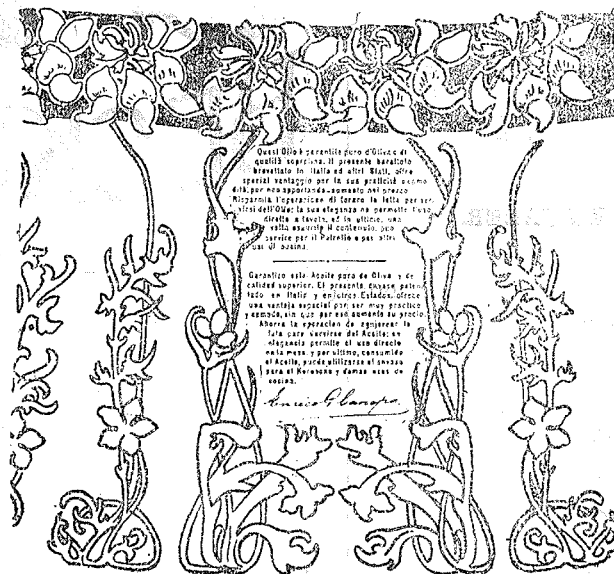 Quest Olio è garantito puro d'Oliva e di
qualità soprafina. Il presente barattolo
brevettato in Italia ed altri Stati, offre
special vantaggio per la sua praticità
dità, por non apportando aumento nel prezzo
Risparmia l'operazione di forare la latta per ser-
virsi dell'Olio; la sua eleganza ne permette l'uso
diretto a tavola, ed in ultimo, una
volta esaurito il contenuto, può
servire per il Petrolio e per altri
usi di cucina.
Garantizo este Aceite puro de Oliva y de
calidad superior. El presente envase paten-
tado en Italia y en otros Estados, ofrece
una ventaja especial por ser muy practico
y comodo, sin que por eso aumente su precio
Ahorra la operacion de agujerear la
lata para servirse del Aceite; su
elegancia permite el uso directo
en la mesa, y por ultimo, consumido
el Aceite, puede utilizarse el envase
para el Kerosene y demas usos de
cocina.